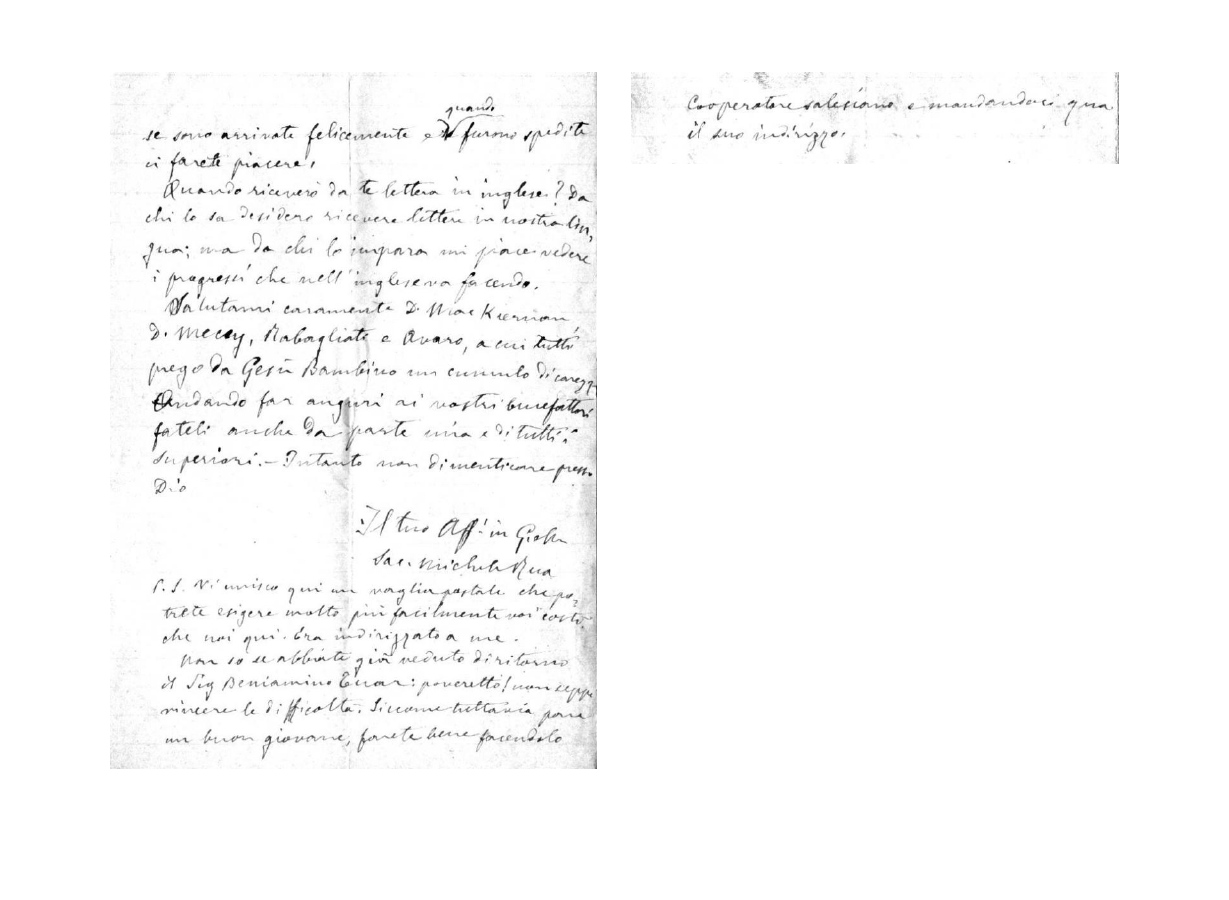 quando
se sono arrivate felicemente e furono spedite
ci farete piacere.
Quando riceverò da te lettera in inglese? Da
chi lo sa desidero ricevere lettere in nostra lin,
gua; ma da chi lo impara mi piace vedere
i progressi che nell'inglese va facendo.
Salutami caramente D. Mac Kiernan,
D. Macey, Rabagliati e Avaro, a cui tutti
prego da Gesù Bambino un cumulo di carezze
Andando far auguri ai nostri benefattori
fateli anche da parte mia e di tutti i
Superiori. - Intanto non dimenticare presso
Dio
Il tuo Aff.º in G.
Sac. Michele Rua
P.S. Vi unisco qui un vaglia postale che po,
trete esigere molto più facilmente voi costì
che noi qui. Era indirizzato a me.
Non so se abbiate già veduto di ritorno
il Sig Beniamino: poveretto! non seppe
vincere le difficoltà. Siccome tuttavia pare
un buon giovane, farete bene facendolo
Cooperatore salesiano e mandandoci qua
il suo indirizzo.